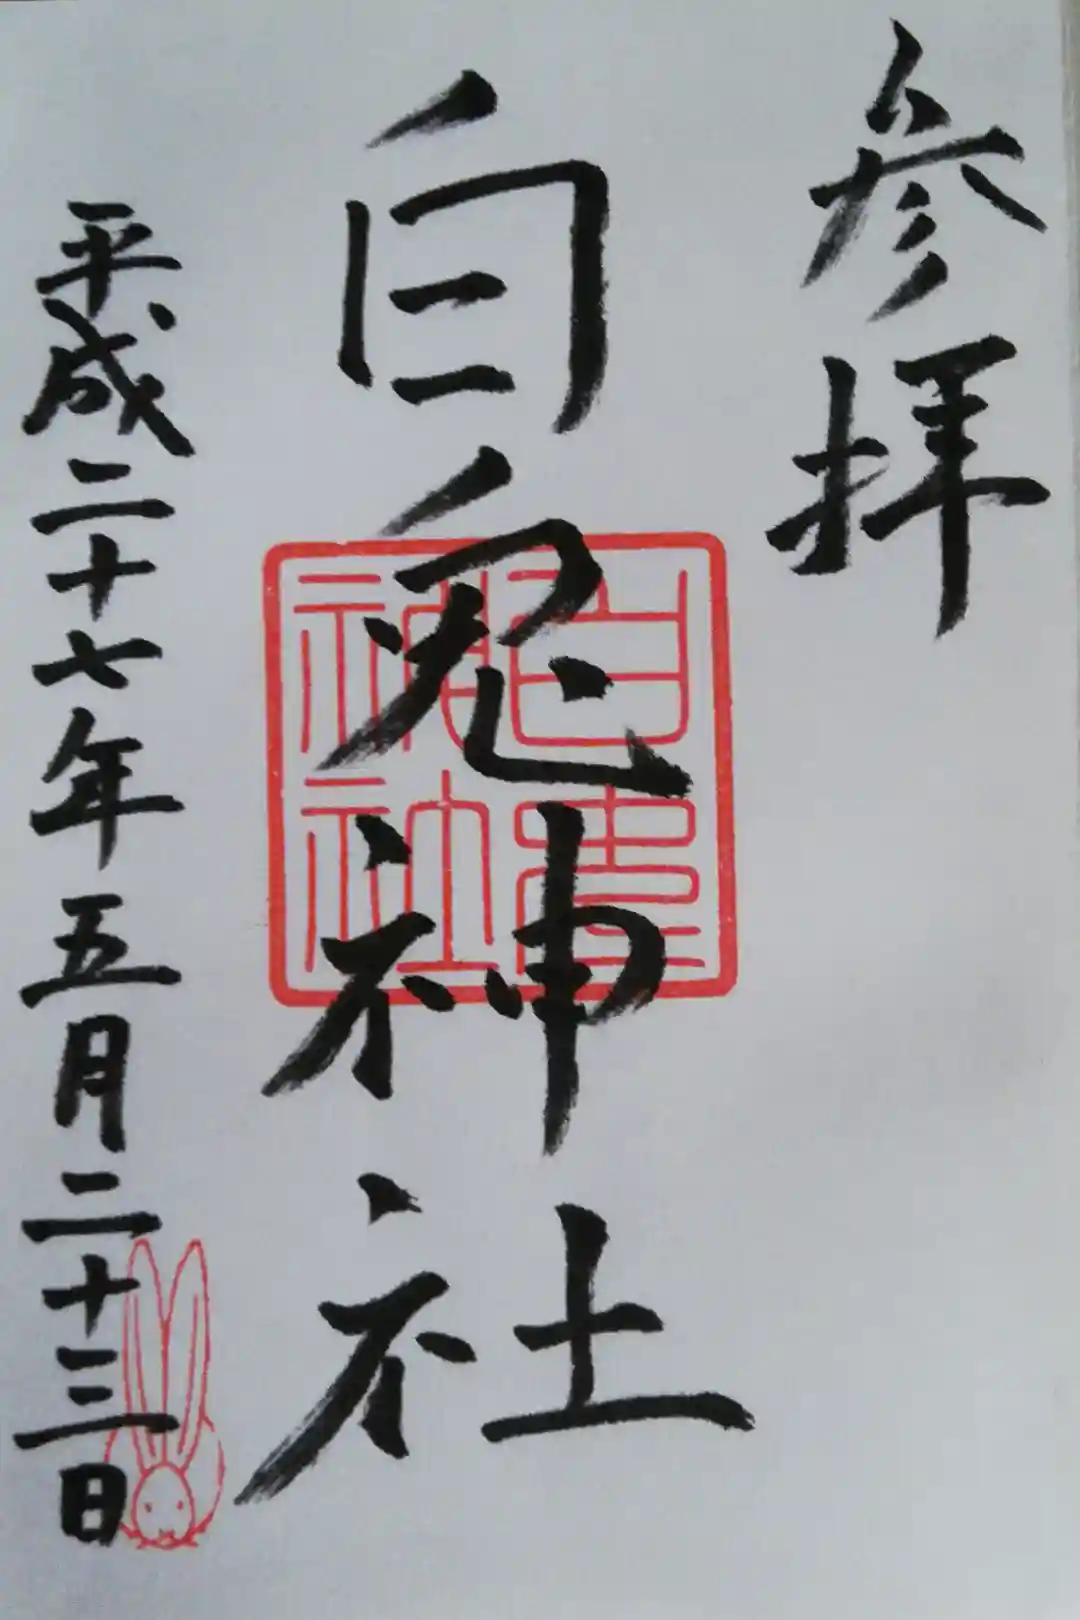 参拝
白兎神社
白兎神社
平成二十七年五月二十三日